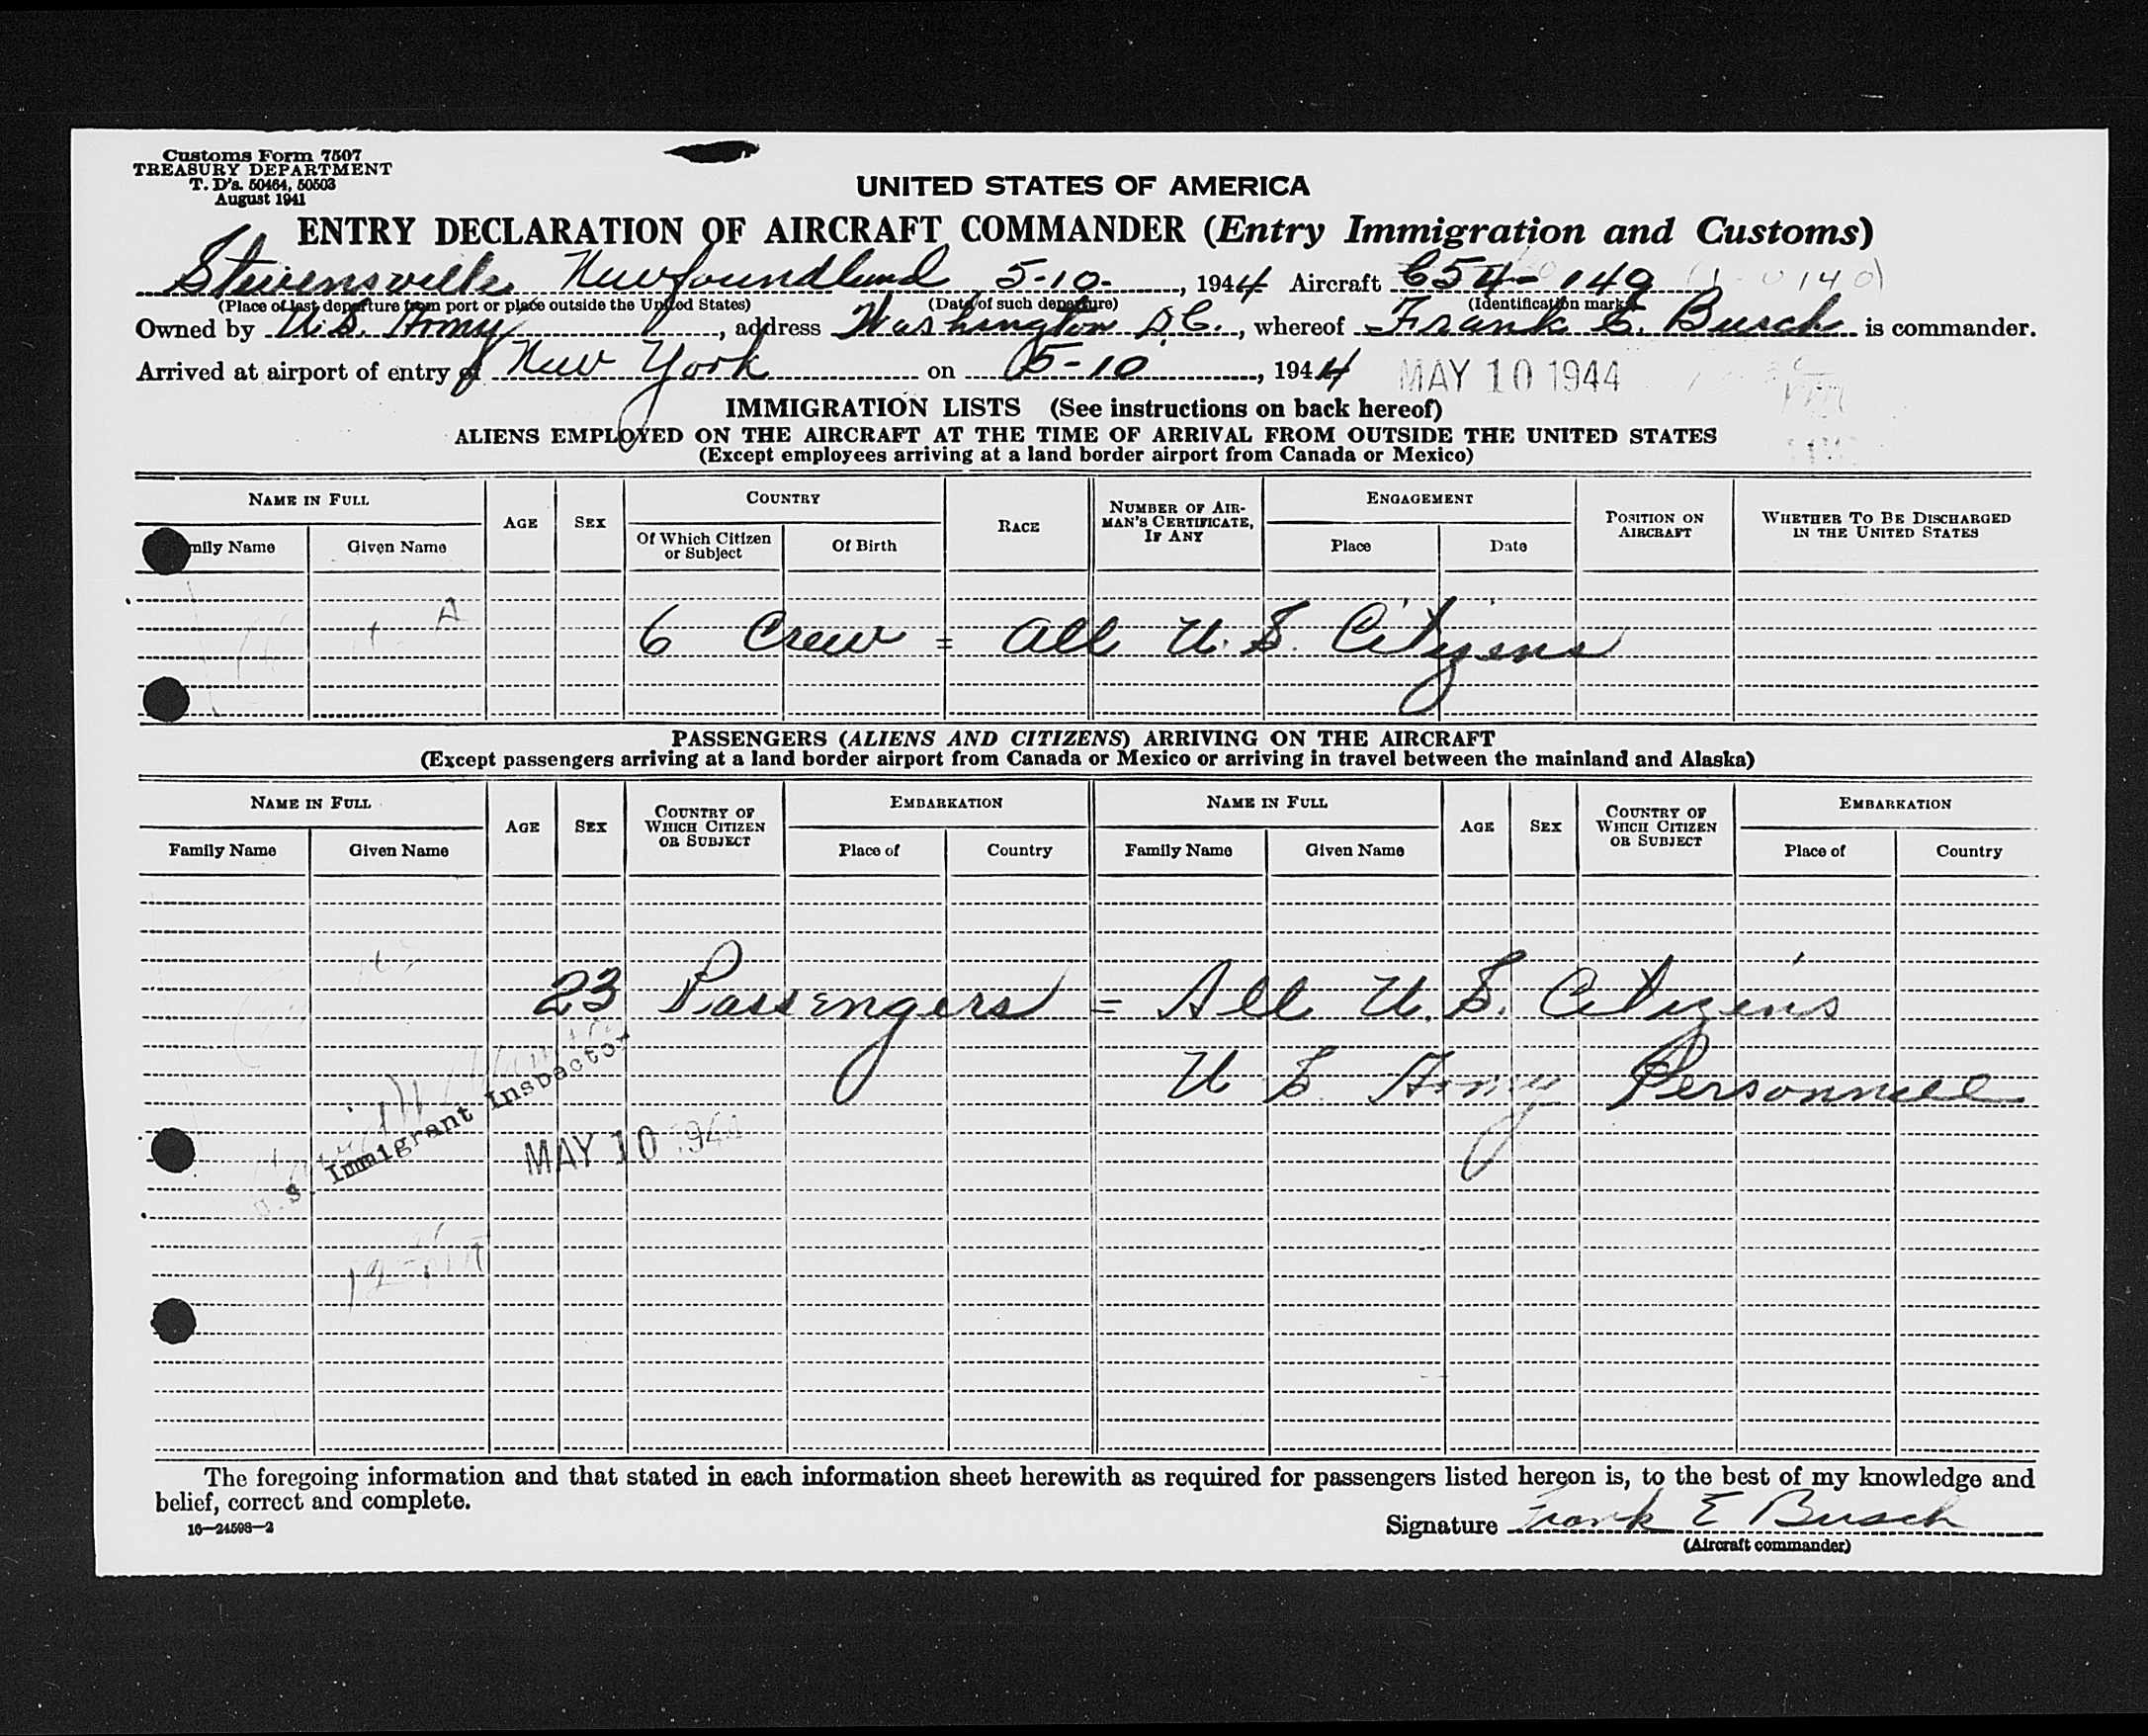 Customs Form 7507
TREASURY DEPARTMENT
T. D's. 50464, 50503
August 1941
UNITED STATES OF AMERICA
ENTRY DECLARATION OF AIRCRAFT COMMANDER (Entry Immigration and Customs)
Stevensville Newfoundland 5-10-, 1944 Aircraft C54-149
(Place of last departure from port or place outside the United States) (Date of such departure) (Identification marks)
Owned by U.S. Army, address Washington D.C., whereof Frank E. Busch is commander.
Arrived at airport of entry of New York on 5-10, 1944 MAY 10 1944
IMMIGRATION LISTS (See instructions on back hereof)
ALIENS EMPLOYED ON THE AIRCRAFT AT THE TIME OF ARRIVAL FROM OUTSIDE THE UNITED STATES
(Except employees arriving at a land border airport from Canada or Mexico)
NAME IN FULL AGE SEX COUNTRY RACE NUMBER OF AIRMAN'S CERTIFICATE, IF ANY ENGAGEMENT POSITION ON AIRCRAFT WHETHER TO BE DISCHARGED IN THE UNITED STATES
mily Name Given Name Of Which Citizen or Subject Of Birth Place Date
A
6 Crew = all U.S. Citizens
PASSENGERS (ALIENS AND CITIZENS) ARRIVING ON THE AIRCRAFT
(Except passengers arriving at a land border airport from Canada or Mexico or arriving in travel between the mainland and Alaska)
NAME IN FULL AGE SEX COUNTRY OF WHICH CITIZEN OR SUBJECT EMBARKATION NAME IN FULL AGE SEX COUNTRY OF WHICH CITIZEN OR SUBJECT EMBARKATION
Family Name Given Name Place of Country Family Name Given Name Place of Country
23 Passengers = All U.S. Citizens
U S Army Personnell
U.S. Immigrant Inspector
MAY 10 194
The foregoing information and that stated in each information sheet herewith as required for passengers listed hereon is, to the best of my knowledge and
belief, correct and complete.
16—24598-2
Signature Frank E Busch
(Aircraft commander)